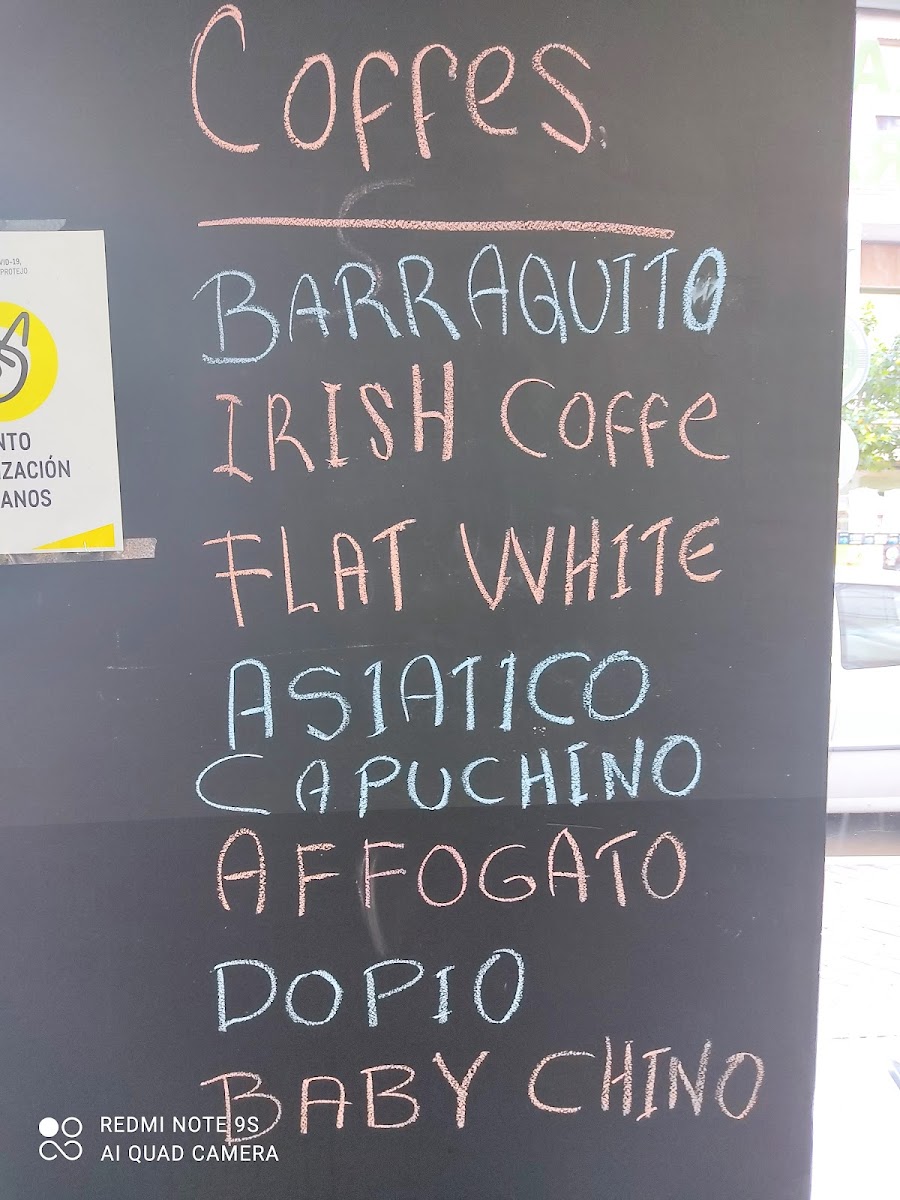 Coffes.
BARRAQUITO
IRISH COFFE
FLAT WHITE
ASIATICO
CAPUCHINO
AFFOGATO
DOPIO
BABY CHINO
VID-19,
PROTEJO
NTO
IZACIÓN
ANOS
REDMI NOTE 9S
AI QUAD CAMERA